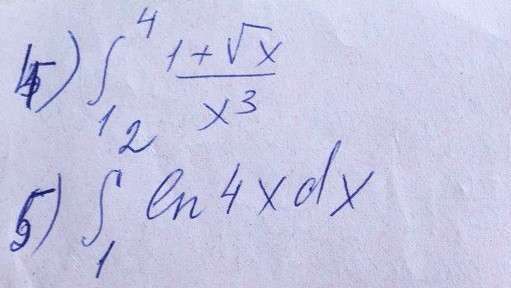 4) ∫₁⁴ (1+√x)/x³
5) ∫₁² ln 4x dx